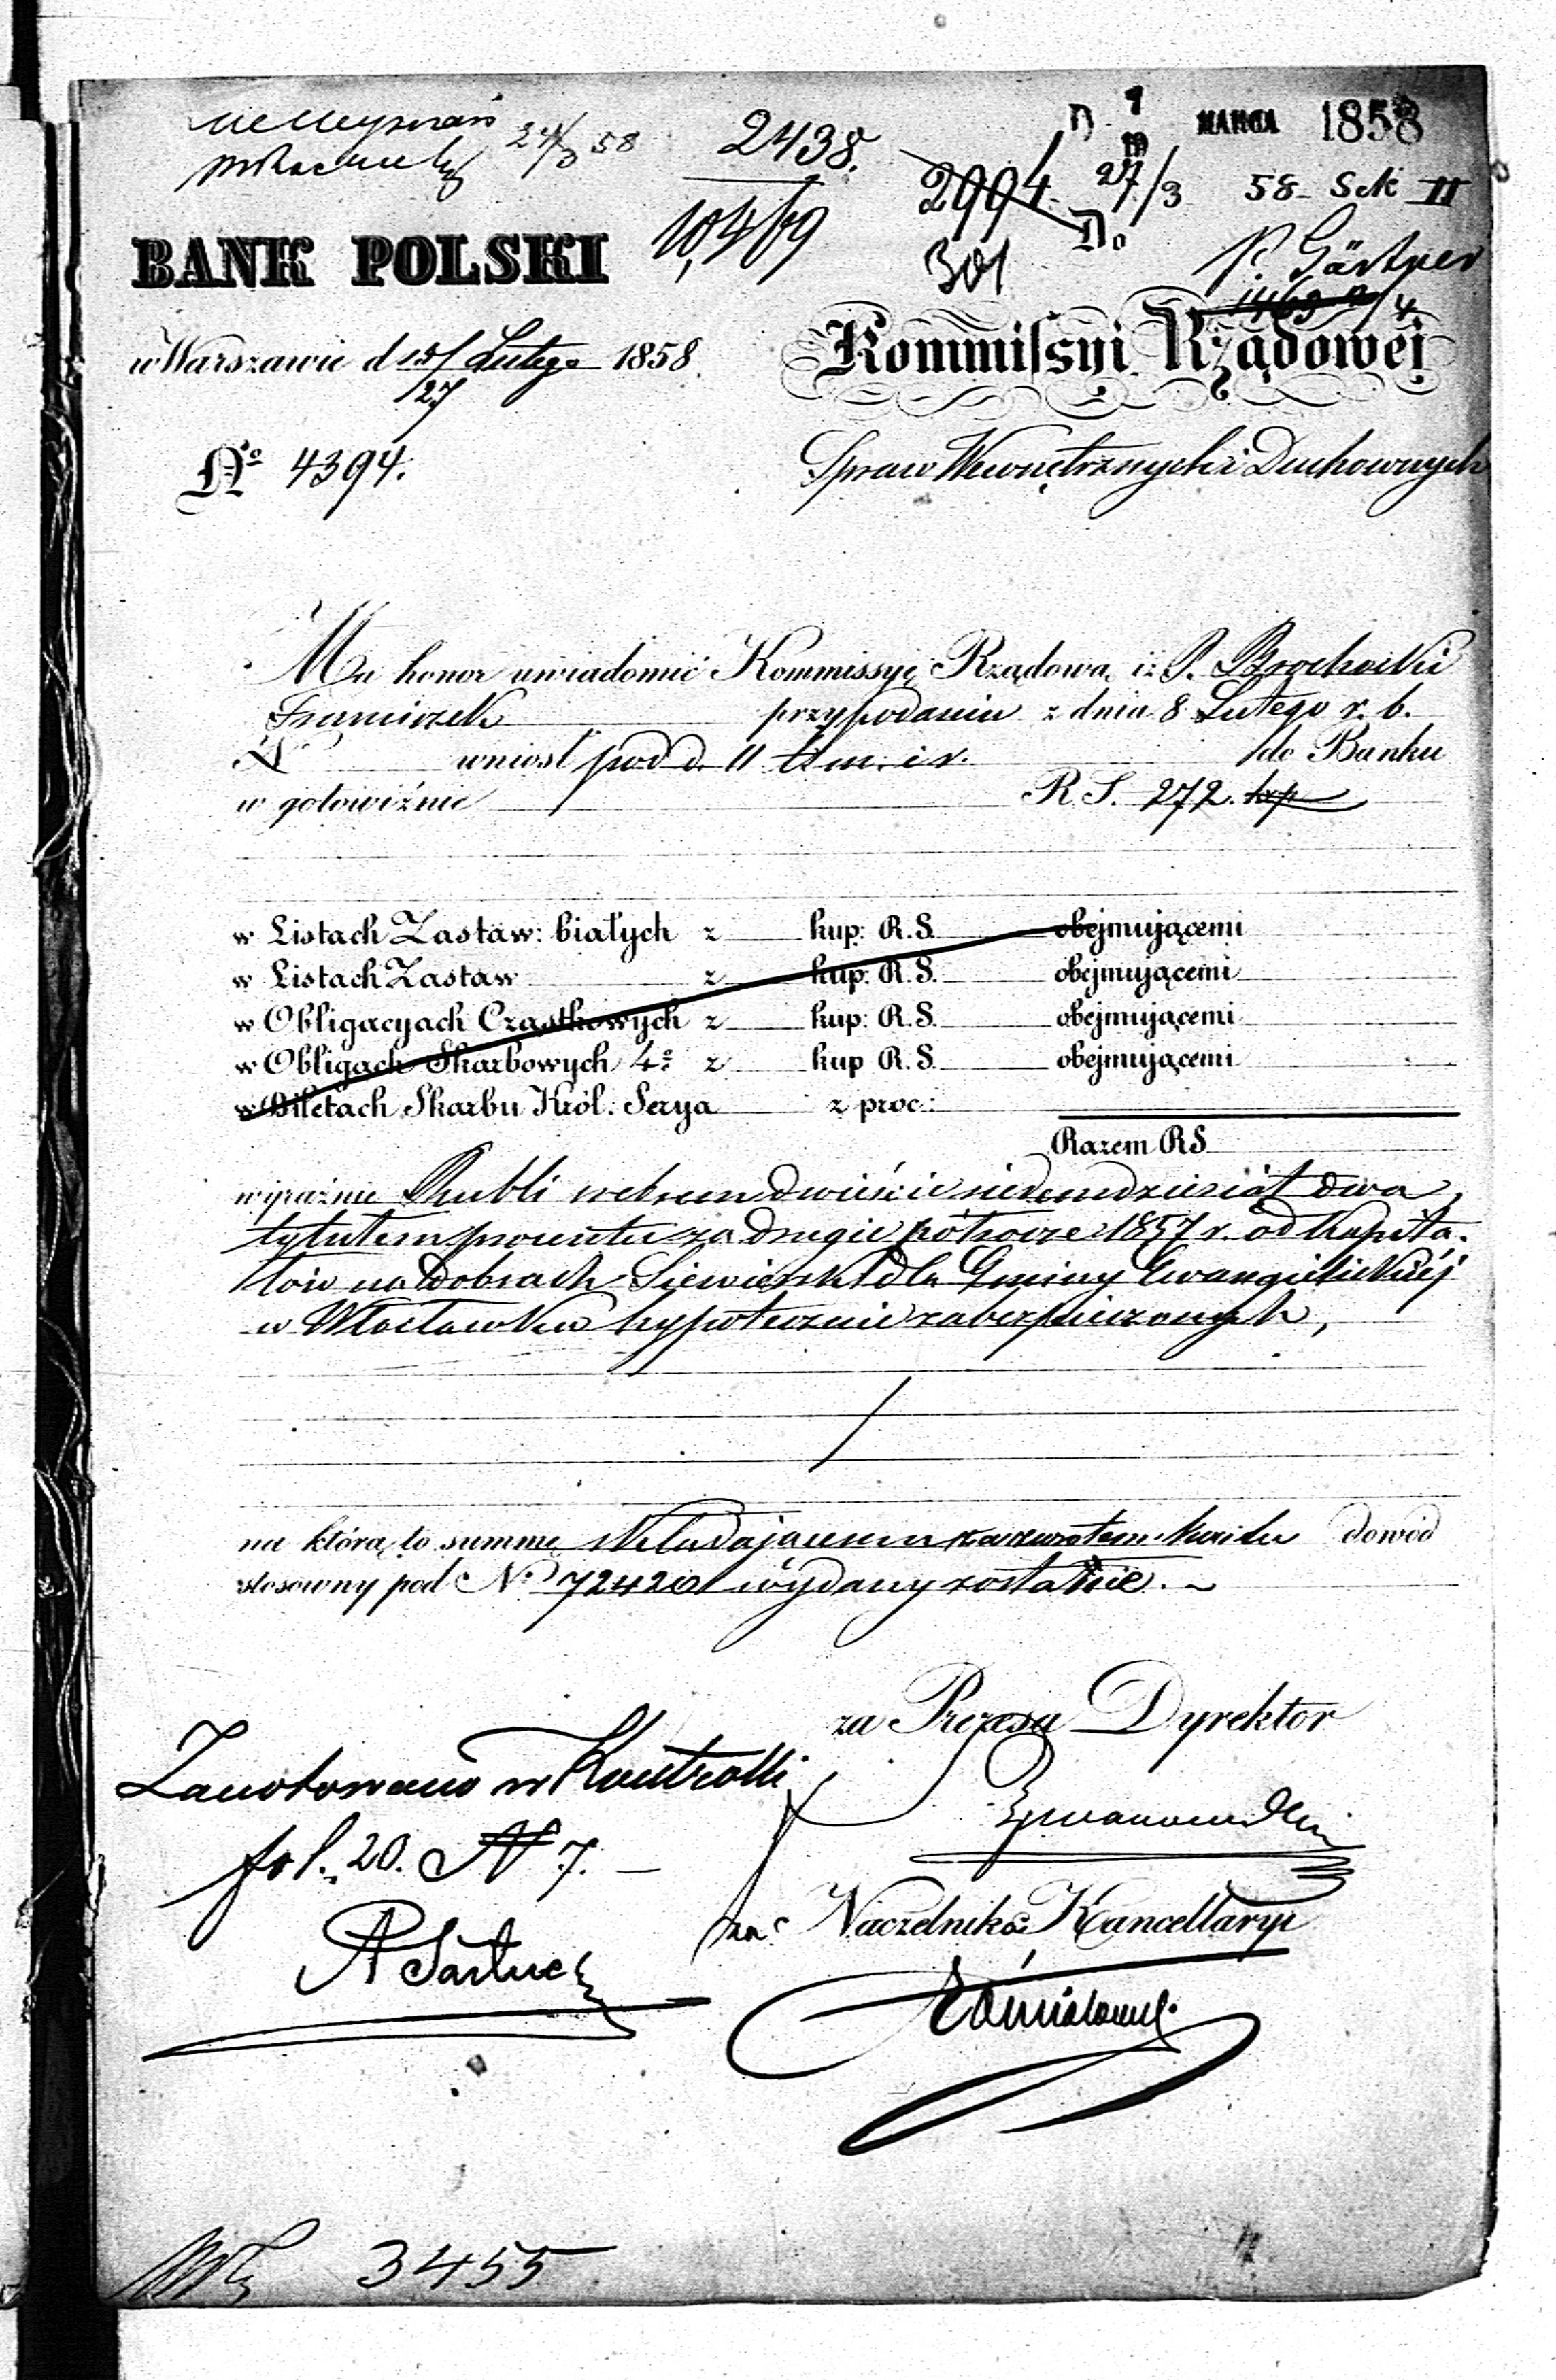 24/3 58
2438.
10,469
2994.
301
D. 1 MARCA 1858
27/3 58 Sek II
P. Gärtner
BANK POLSKI
Do
w Warszawie d 15/27 Lutego 1858
Kommissyi Rządowej
No 4394.
Spraw Wewnętrznych i Duchownych
Ma honor uwiadomić Kommissyę Rządową iż P. Brochocki
Franciszek przy podaniu z dnia 8 Lutego r. b.
N wniósł pod d. 11 t. m. i r. do Banku
w gotowiźnie R S. 272. kop
w Listach Zastaw: białych z kup: R. S. obejmującemi
w Listach Zastaw z kup: R. S. obejmującemi
w Obligacyach Cząstkowych z kup: R. S. obejmującemi
w Obligach Skarbowych 4o z kup R. S. obejmującemi
w Biletach Skarbu Król: Serya z proc:
Razem RS
wyraźnie Rubli srebrem dwieście siedemdziesiąt dwa,
tytułem procentu za drugie półrocze 1857 r. od kapita-
łów na dobrach Siewiersk dla Gminy Ewangielickiéj
w Włocławku hypotecznie zabezpieczonych,
na którą to summę składającemu za zwrotem kwitu dowód
stosowny pod No 72420 wydany zostanie.
za Prezesa Dyrektor
Zanotowano w Kontrolli
fol. 20. N 7.
za Naczelnika Kancellaryi
3455